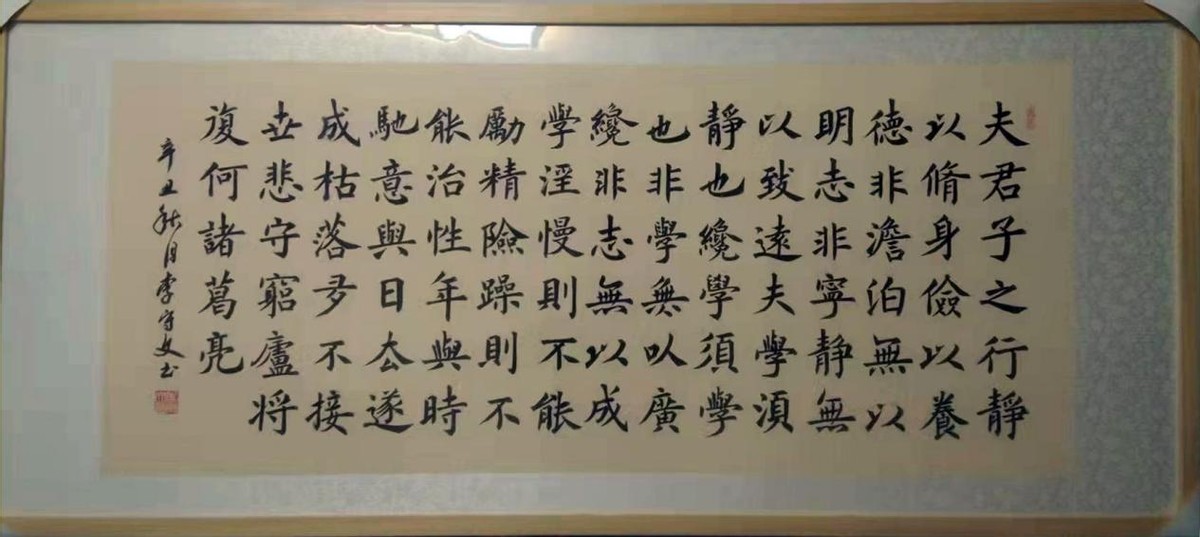 夫君子之行靜
以脩身儉以養
德非澹泊無以
明志非寧靜無
以致遠夫學須
靜也纔學須學
也非學無以廣
纔非志無以成
學淫慢則不能
勵精險躁則不
能治性年與時
馳意與日去遂
成枯落多不接
世悲守窮廬将
復何諸葛亮
辛丑秋月李守文书